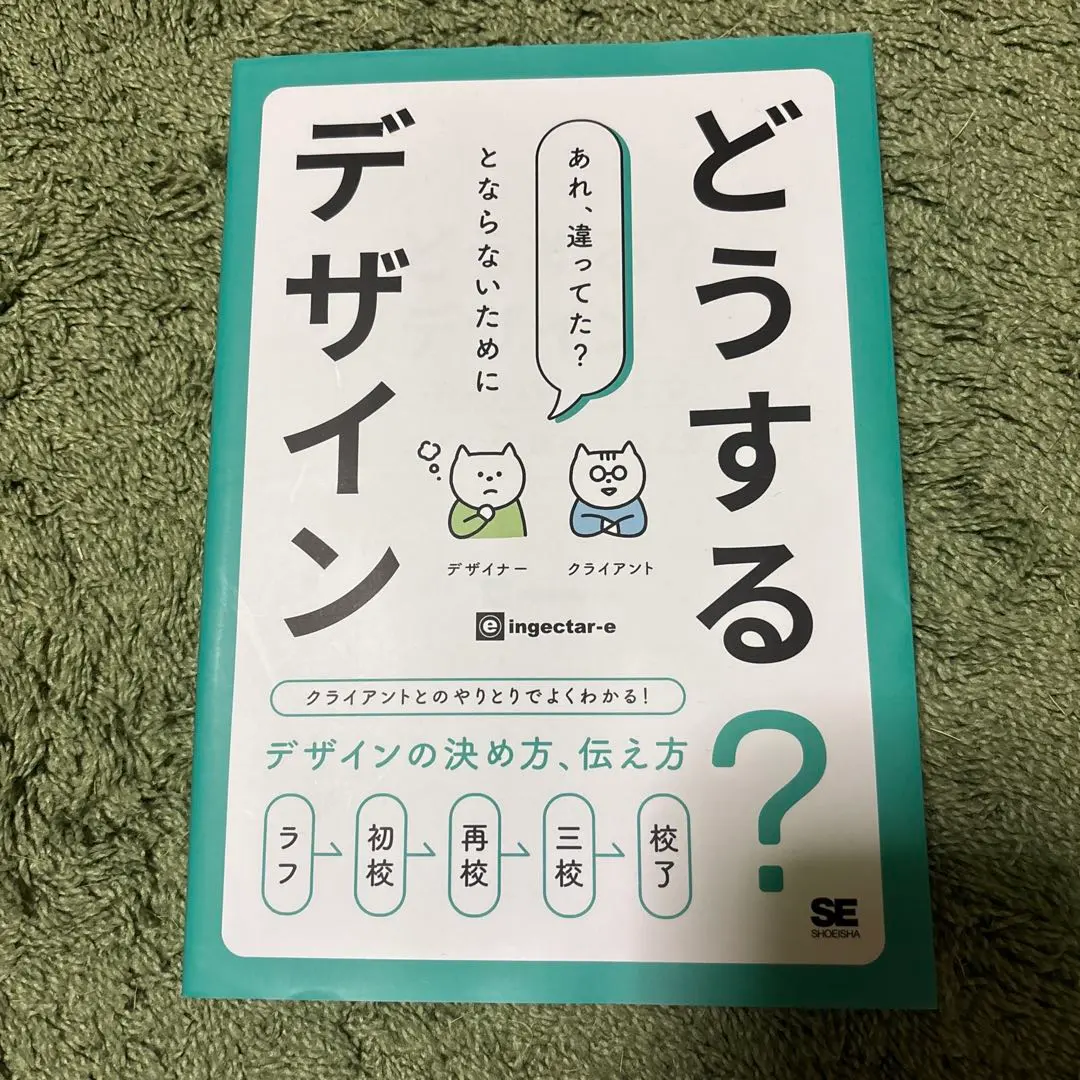 どうする?
デザイン
あれ、違ってた?
とならないために
デザイナー
クライアント
e ingectar-e
クライアントとのやりとりでよくわかる!
デザインの決め方、伝え方
ラフ
初校
再校
三校
校了
SE
SHOEISHA